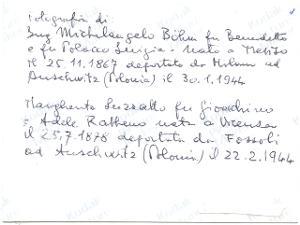 Fotografia di
Ing Michelangelo Böhm fu Benedetto
e fu Polacco Luigia - nato a Treviso
il 25.11.1867 deportato da Milano ad
Auschwitz (Polonia) il 30.1.1944
Margherita Luzzatto fu Gioachino
e Adele nata a Vicenza
il 25.7.1878 deportata da Fossoli
ad Auschwitz (Polonia) il 22.2.1944